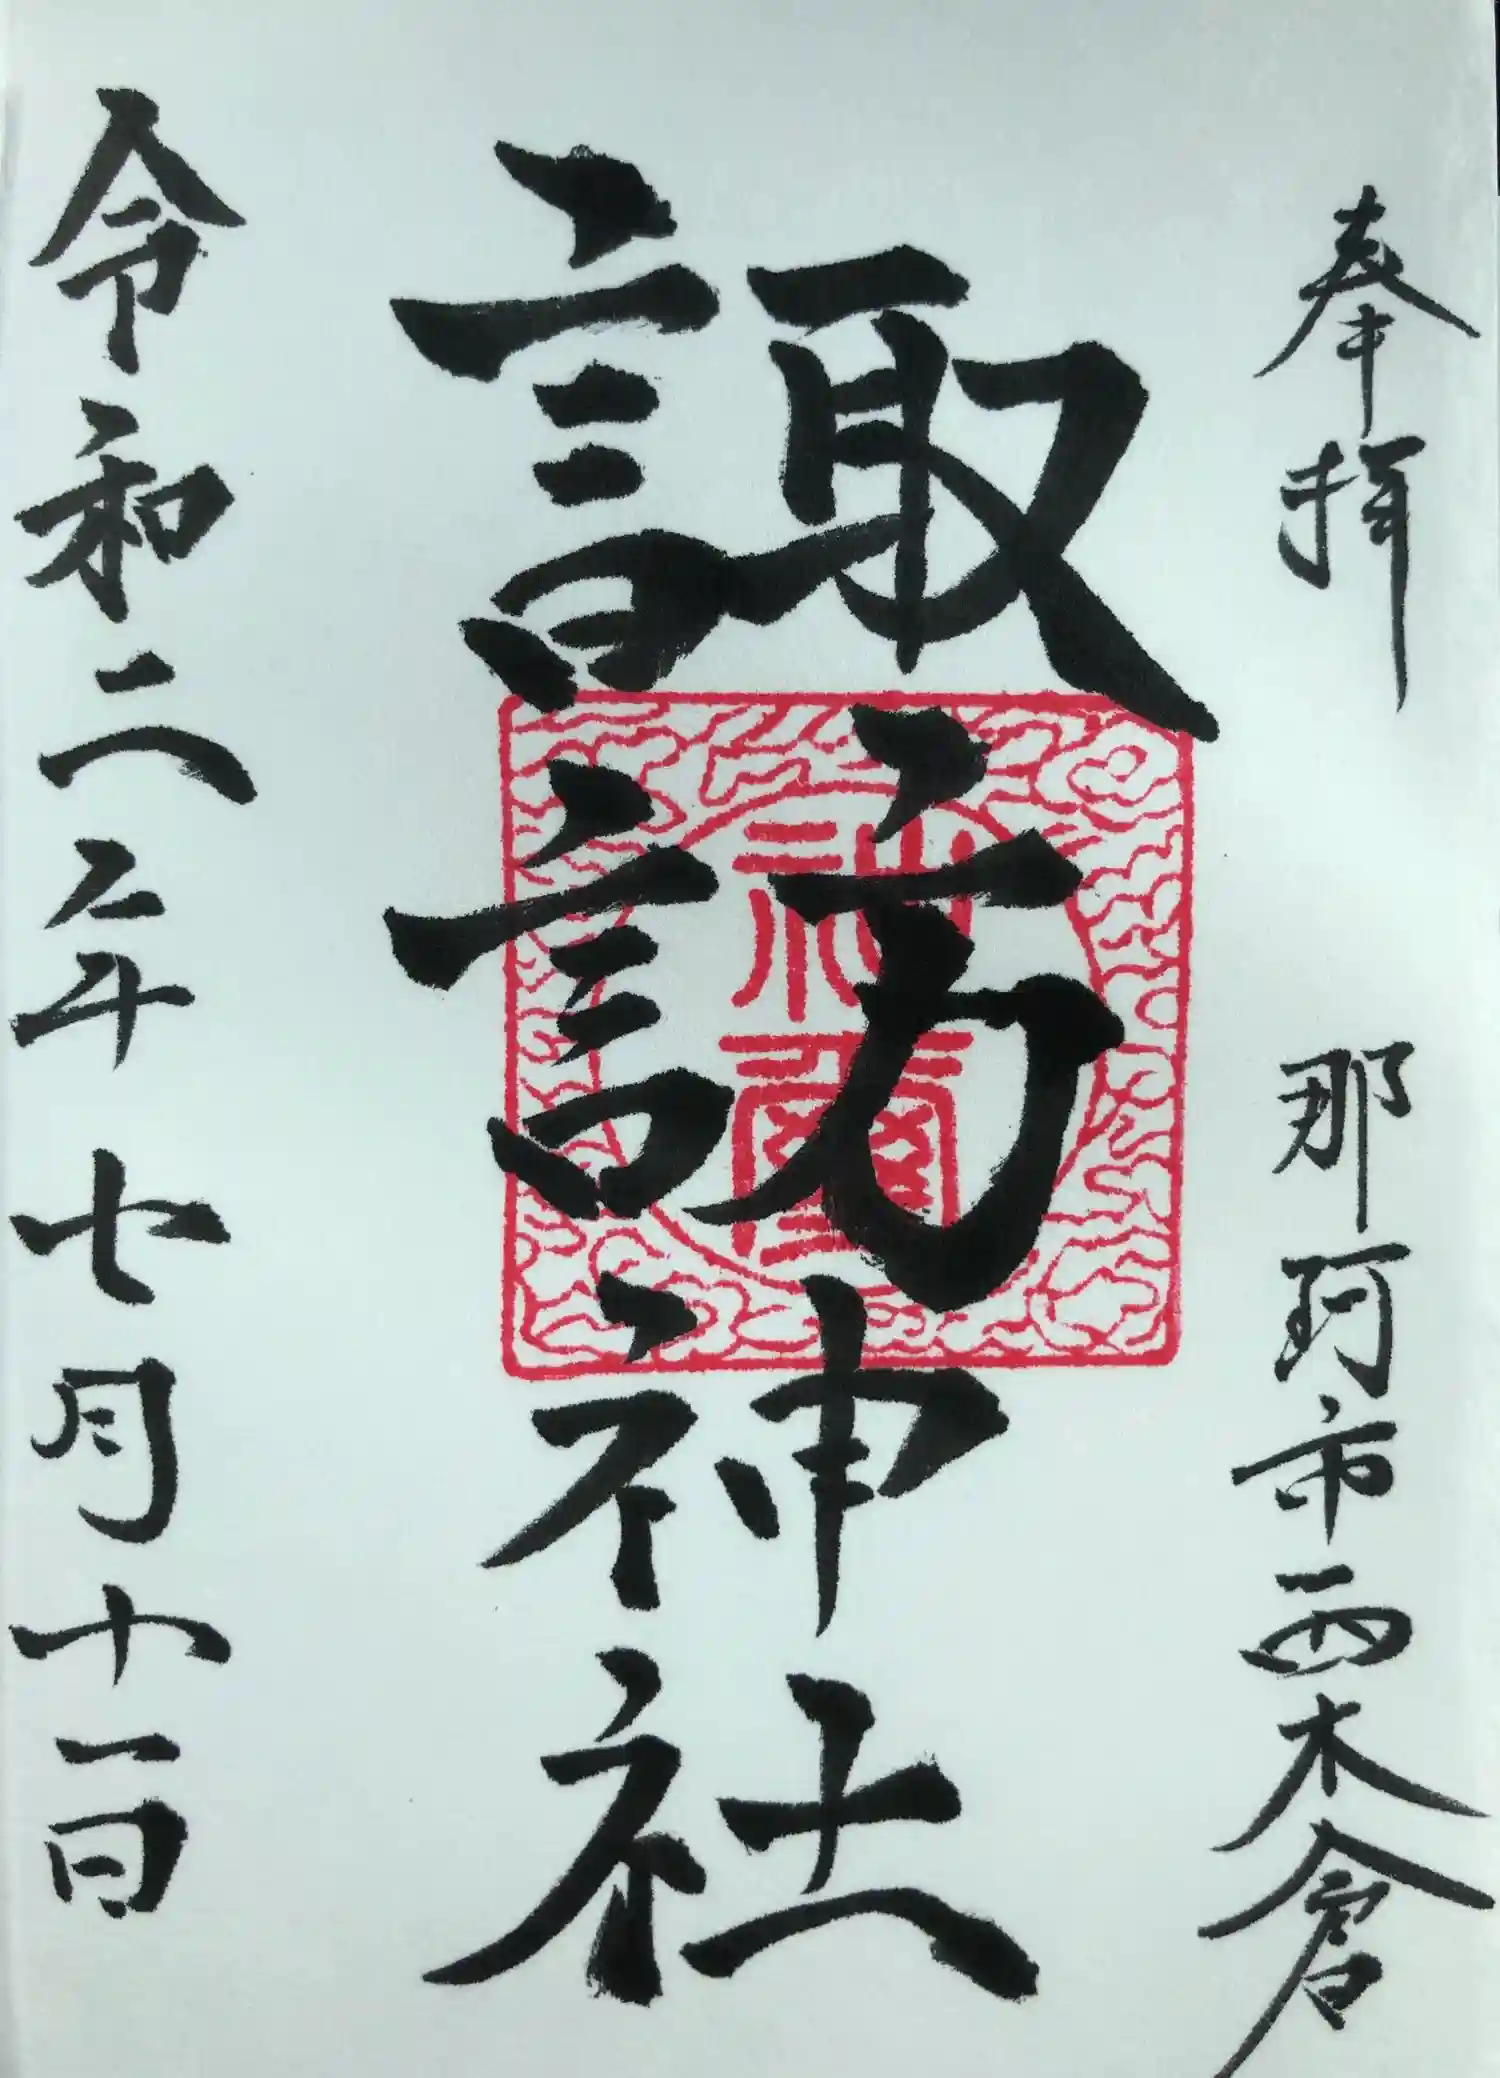 奉拝
那珂市西木倉
諏訪神社
神璽
令和二年七月十一日